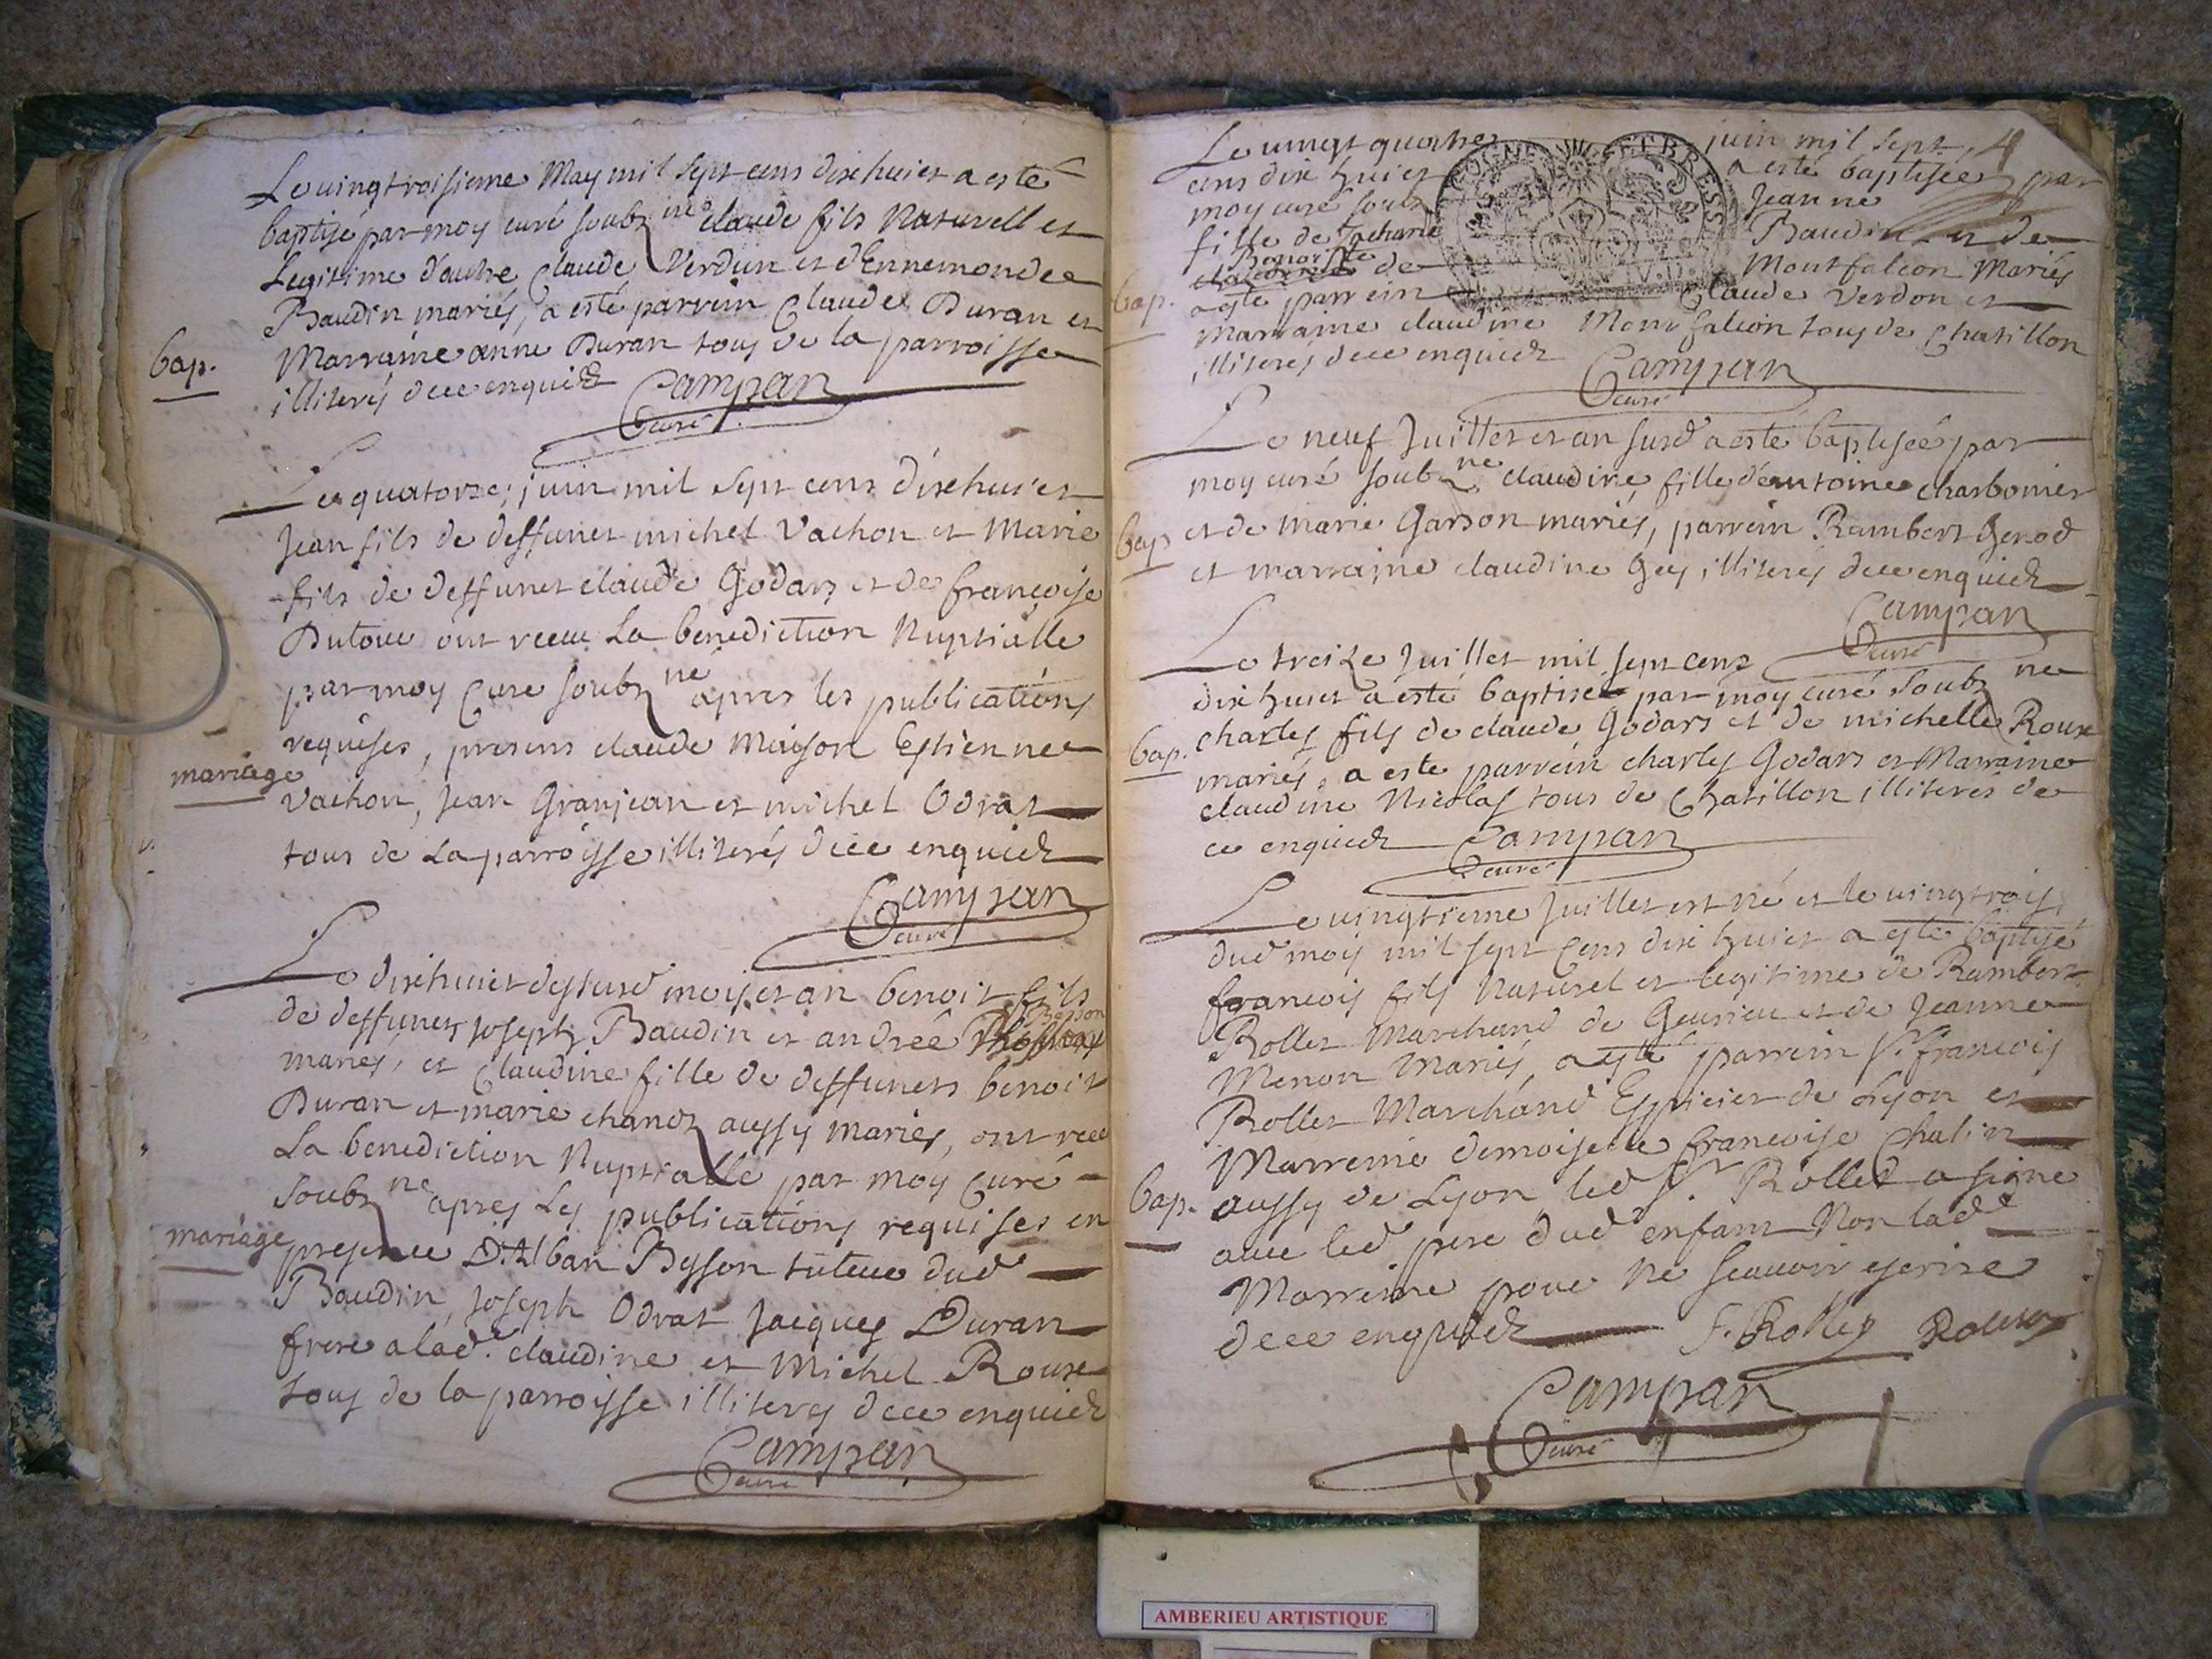 Le vingtroisieme May mil sept cens dixhuict a esté
baptisé par moy curé soubz ne claude fils Naturell et
Legitime d'autre Claude Verdun et d'Ennemondee
Baudin mariés, a esté parrein Claude Duran et
bap. Marraine anne Duran tous de la parroisse
illiterés dece enquiéz Campan
curé
Le quatorze juin mil sept cens dixhuict
Jean fils de deffunct michel Vachon et Marie
fils de deffunct claude Godars et de françoise
Dutour ont receu La benediction Nuptialle
par moy Curé soubz né apres les publications
requises, presens claude Maison Estienne
mariage Vachon, Jean Granjean et michel Odrat
tous de La parroisse illiterés dece enquiéz
Campan
curé
Le dixhuict dessusd mois et an benoit fils
de deffunct Joseph Baudin et andreé Besson
mariés, et Claudine fille de deffuncts benoit
Duran et marie chanoz aussy mariés, ont receu
La benediction Nuptialle par moy Curé
soubz ne apres Les publications requises en
mariage presence D'Alban Bysson tuteur dud
Baudin, Joseph Odrat Jacques Duran
frere a lad. claudine et Michel Roux
tous de la parroisse illiterés dece enquiéz
Campan
curé
Le vingt quatre juin mil sept
cens dixhuict a esté baptisée par
moy curé soubz Jeanne
fille de Zacharie Baudin et de
de Montfalcon Mariés
bap. a esté parrein Claude Verdon et
Marraine claudine Montfalcon tous de Chatillon
illiterés dece enquiéz Campan
curé
Le neuf Juillet et an susd a esté baptisée par
moy curé soubz ne claudine fille d'éantoine charbonier
bap et de Marie Garson mariés, parrein Rambert Genod
et marraine claudine Gey illiterés dece enquiéz
Campan
curé
Le treize Juillet mil sept cens
dixhuict a esté baptisé par moy curé soubz ne
charles fils de claude Godars et de michelle Roux
bap. mariés, a esté parrein charles Godars et Marraine
claudine Nicolas tous de Chatillon illiterés de
ce enquiéz Campan
curé
Le vingtieme Juillet est né et le vingtrois
dud mois mil sept cens dixhuict a esté baptisé
francois fils Naturel et legitime de Rambert
Rollet Marchand de Geurieu et de Jeanne
Menon Mariés, a esté parrein Sr. francois
Rollet Marchand Espicier de Lyon et
Marreine demoiselle francoise Chalin
bap. aussy de Lyon led Sr. Rollet a signe
avec led pere dud enfant Non lade
Marreine pour ne scauoir escrire
dece enquiéz F. Rollet
Campan
curé
AMBERIEU ARTISTIQUE